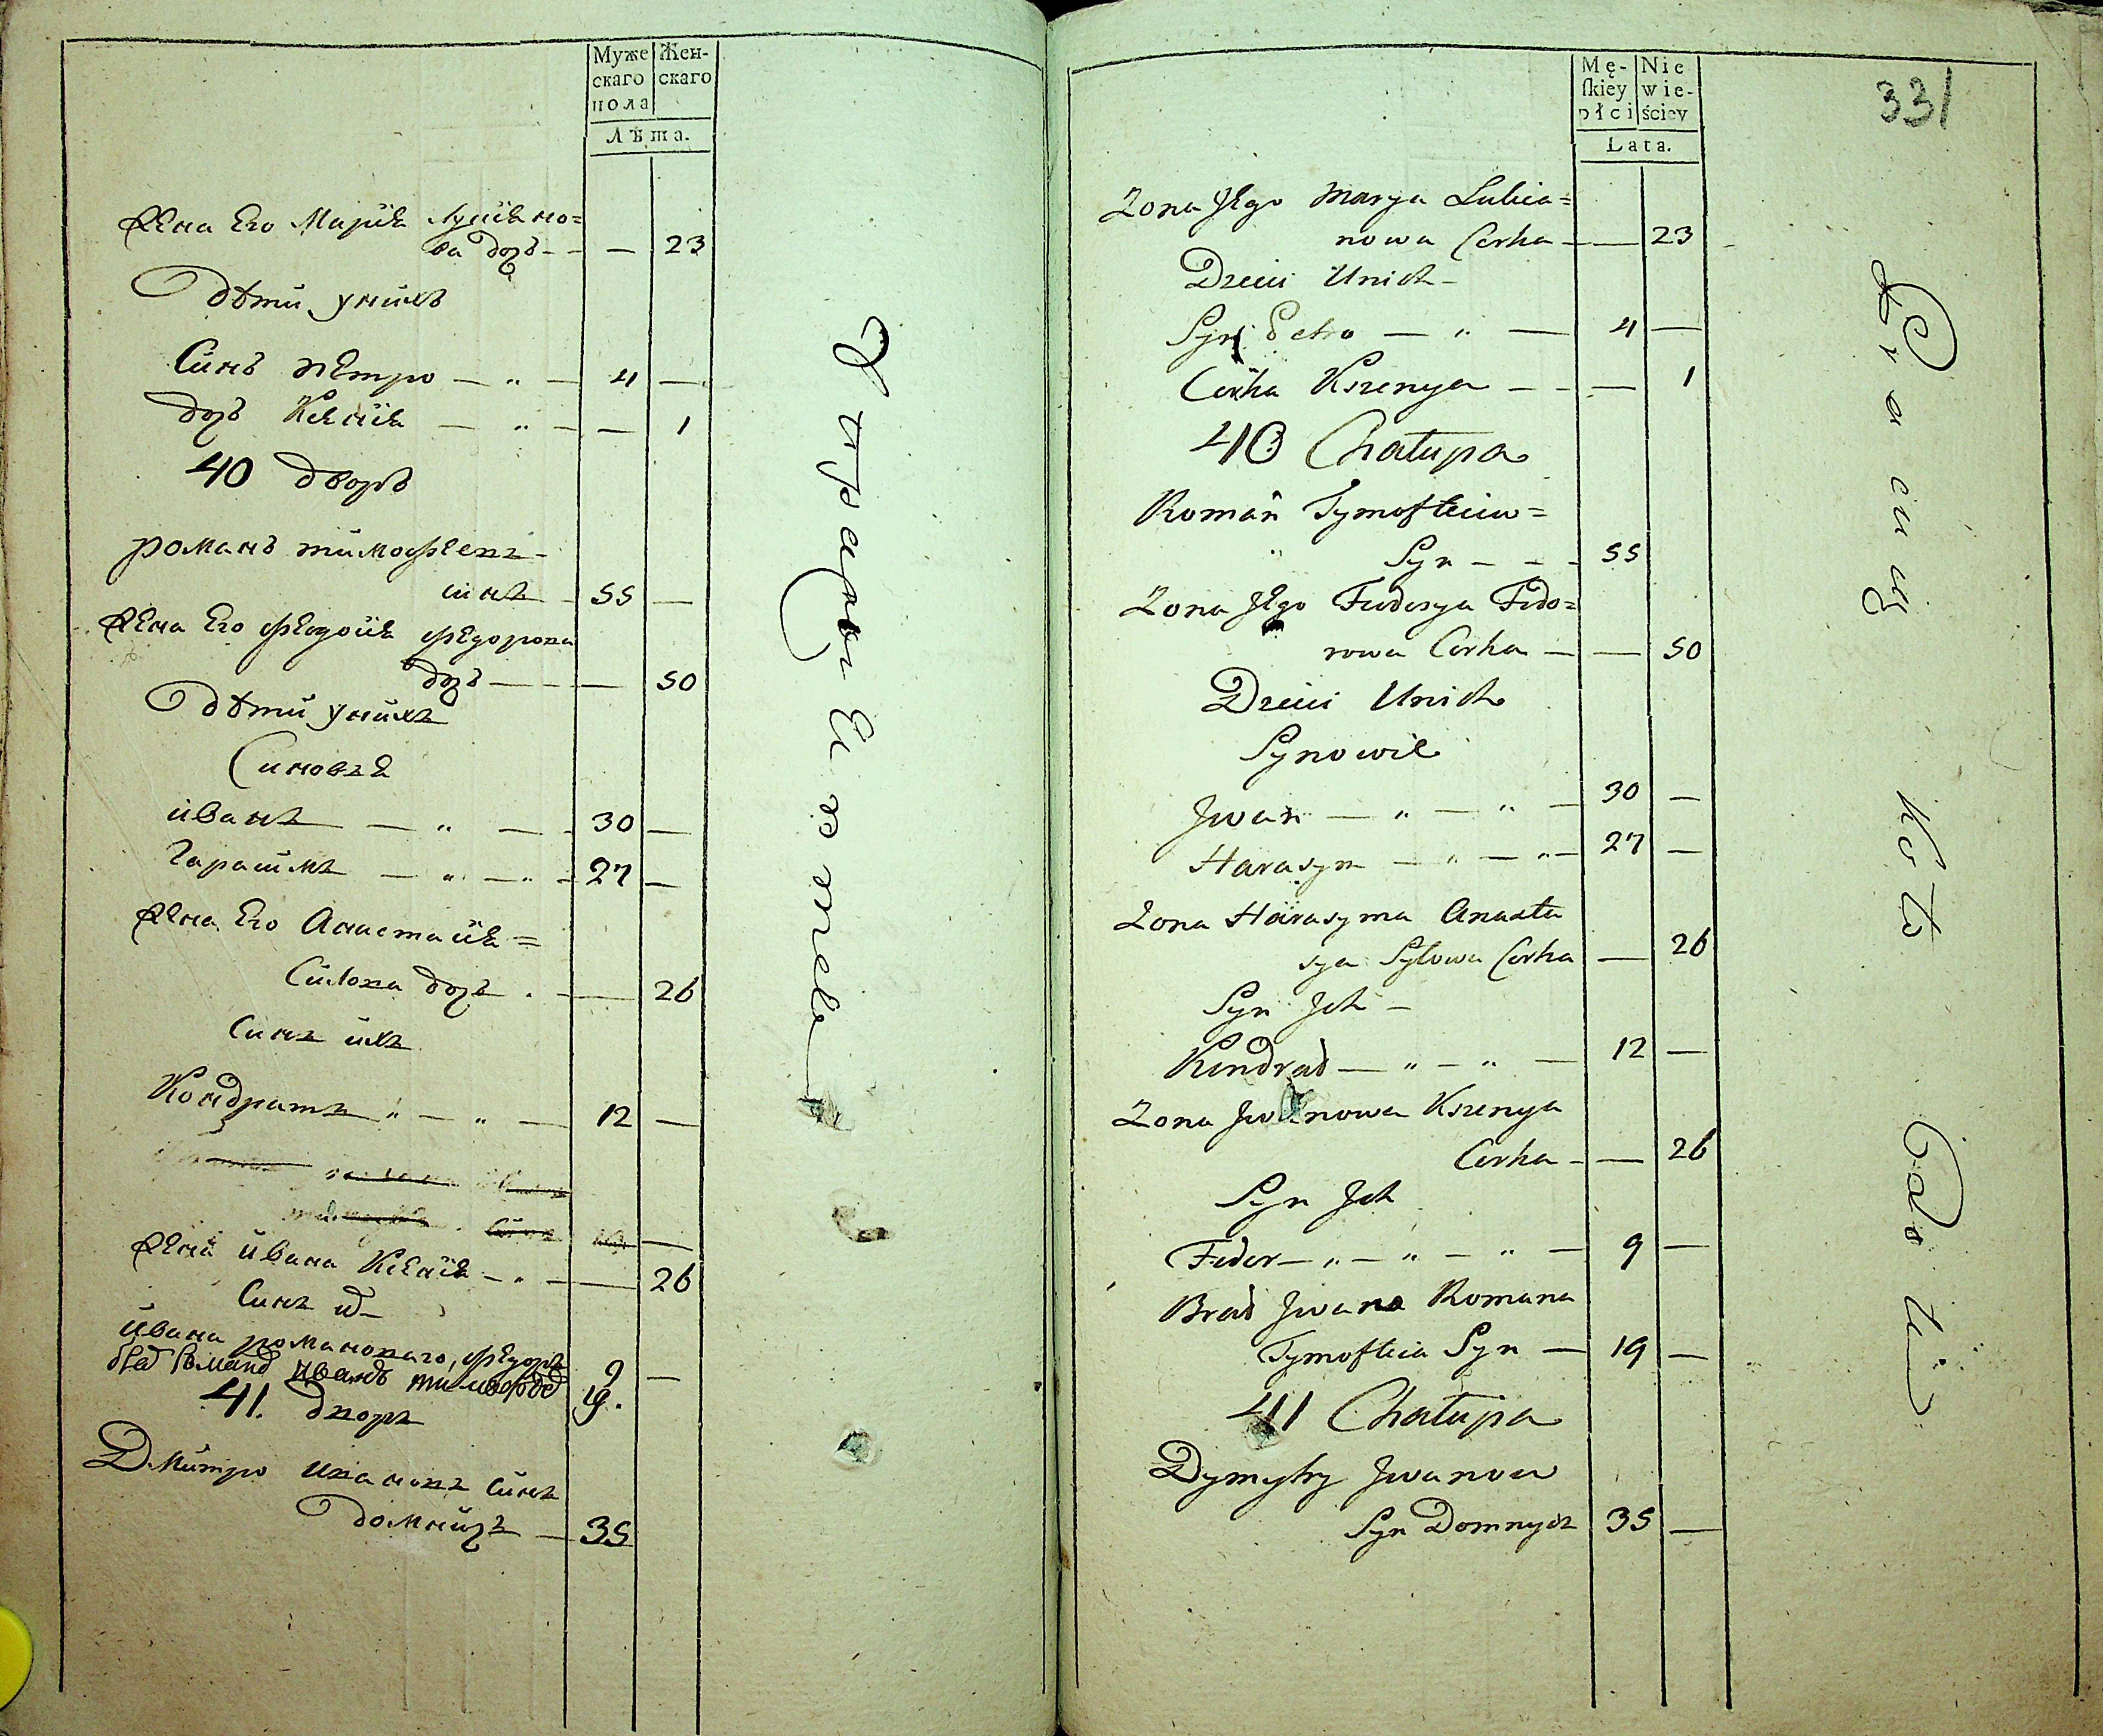 Муже
скаго
пола
Жен-
скаго
Лѣта.
Жена Его Марія Лукіяно=
ва дочь - - — 23
Дѣти унихъ
Синъ петро — „ — 4 —
дочь Ксенія — „ - — 1
40 дворъ
романъ тимофеевъ-
синъ - 55 —
Жена Его Федосія Федорова
дочь — — 50
Дѣти унихъ
Синовья
иванъ — „ — - 30 —
Гарасимъ — „ — „ - 27 —
Жена Его Анастасія=
Силова дочь . — 26
Синъ ихъ
Кондратъ „ — „ — 12 —
Жена ивана Ксенія - „ - — 26
Синъ
ивана романоваго, Федоръ 9 —
иванъ 19.
41. дворъ
Дмитро ивановъ синъ
Домничъ — 35
Mę-
skiey
płci
Nie
wie-
ściey
Lata.
331
Zona Jego Marya Lukia=
nowa Corka — — 23
Dzieci Unich -
Syn Petro — „ — 4 —
Corka Kszenya — - — 1
40 Chałupa
Roman Tymofteiw=
Syn - - - 55
Zona Jego Fiedosya Fedo=
rowa Corka — — 50
Dzieci Unich
Synowie
Jwan — „ — „ — 30 —
Harasym — „ — „ — 27 —
Zona Harasyma Anasta
sya Sylowa Corka — 26
Syn Jch -
Kondrad — „ — „ — 12 —
Zona Jwanowa Kszenya
Corka - — 26
Syn Jch
Fedor — „ — „ — „ — 9 —
Brat Jwana Romana
Tymofteia Syn — 19 —
41 Chałupa
Dymytry Jwanow
Syn Domnycz 35 —